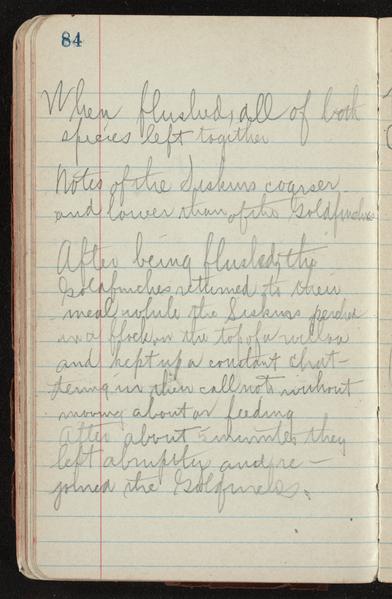 84
When flushed, all of both
species left together
Notes of the Siskins coarser
and lower than of the Goldfinches
After being flushed, the
Goldfinches returned to their
meal, while the Siskins perched
in a flock on the top of a willow
and kept up a constant chat-
tering in their call note without
moving about or feeding
After about 5 minutes they
left abruptly and re-
joined the Goldfinches.